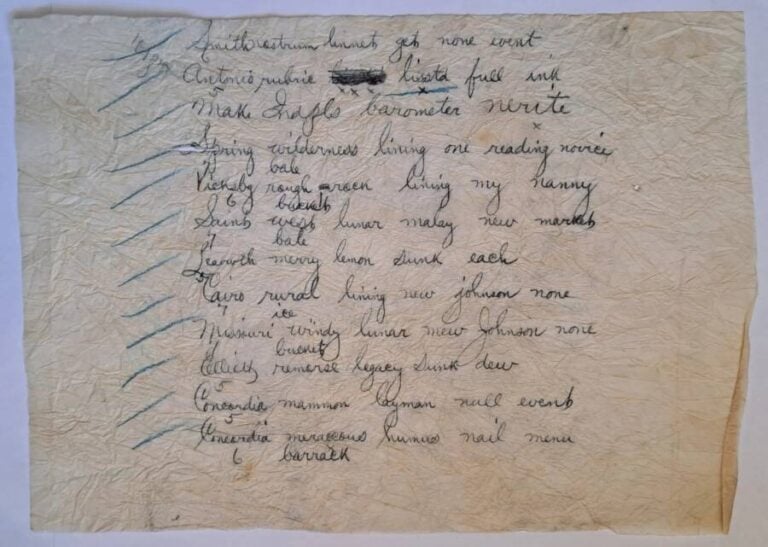 Smith nostrum linnet get none event
Antonio rubric lissta full ink
5 x x x x
Make Indpls barometer nerite
x
Spring wilderness lining one reading novice
bale
Vicksbg rough rock lining my nanny
6 bucket
Saints west lunar malay new market
4 bale
Leavwth merry lemon sunk each
5
Cairo rural lining new johnson none
4 ice
Missouri windy lunar mew Johnson none
bucket
Celliet remorse legacy sunk dew
5
Concordia mammon layman null events
5
Concordia meraccous humus nail menu
6 barrack